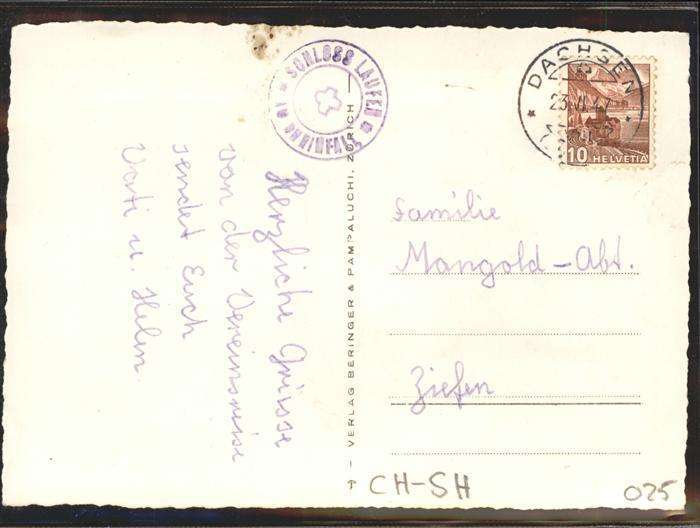 Herzliche Grüsse
von der Vereinsreise
sendet Euch
Vati u. Helen
* SCHLOSS LAUFEN *
RHEINFALL
VERLAG BERINGER & PAMPALUCHI, ZÜRICH
DACHSEN
23.VI.47
10 HELVETIA
Familie
Mangold-Abt.
Ziefen
CH-SH
025